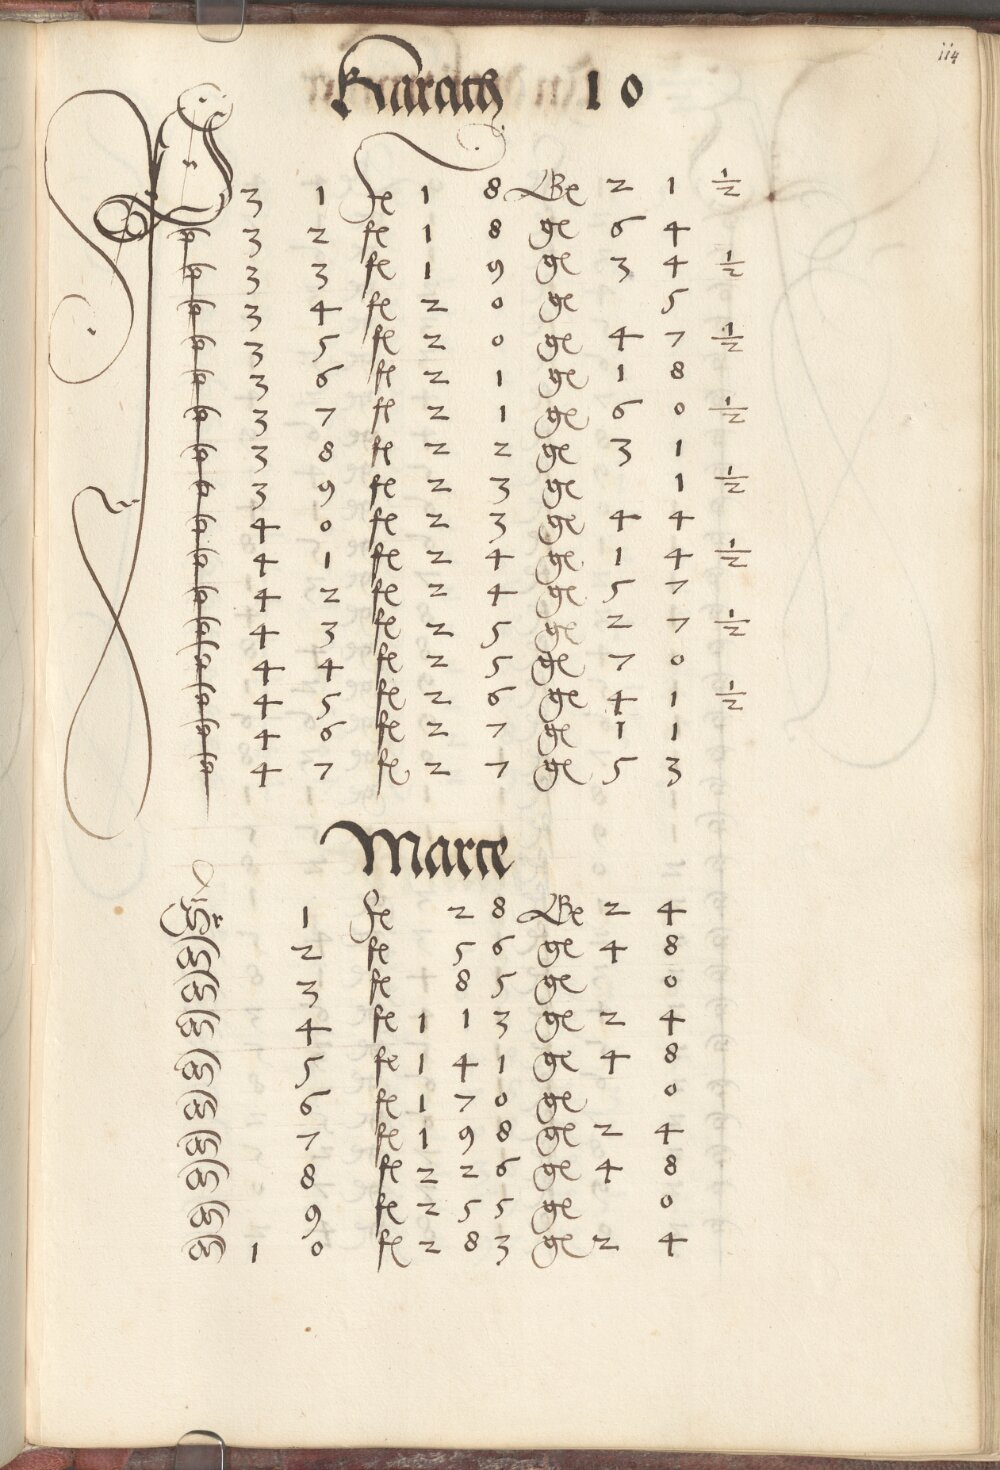 114
Karath 10
3 1 fe 1 8 ge 2 1 ½
3 2 fe 1 8 ge 6 4
3 3 fe 1 9 ge 3 4 ½
3 4 fe 2 0 ge 5
3 5 fe 2 0 ge 4 7 ½
3 6 fe 2 1 ge 1 8
3 7 fe 2 1 ge 6 0 ½
3 8 fe 2 2 ge 3 1
3 9 fe 2 3 ge 1 ½
4 0 fe 2 3 ge 4 4
4 1 fe 2 4 ge 1 4 ½
4 2 fe 2 4 ge 5 7
4 3 fe 2 5 ge 2 7 ½
4 4 fe 2 5 ge 7 0
4 5 fe 2 6 ge 4 1 ½
4 6 fe 2 7 ge 1 1
4 7 fe 2 7 ge 5 3
Marce
1 fe 2 8 ge 2 4
2 fe 5 6 ge 4 8
3 fe 8 5 ge 0
4 fe 1 1 3 ge 2 4
5 fe 1 4 1 ge 4 8
6 fe 1 7 0 ge 0
7 fe 1 9 8 ge 2 4
8 fe 2 2 6 ge 4 8
9 fe 2 5 5 ge 0
1 0 fe 2 8 3 ge 2 4